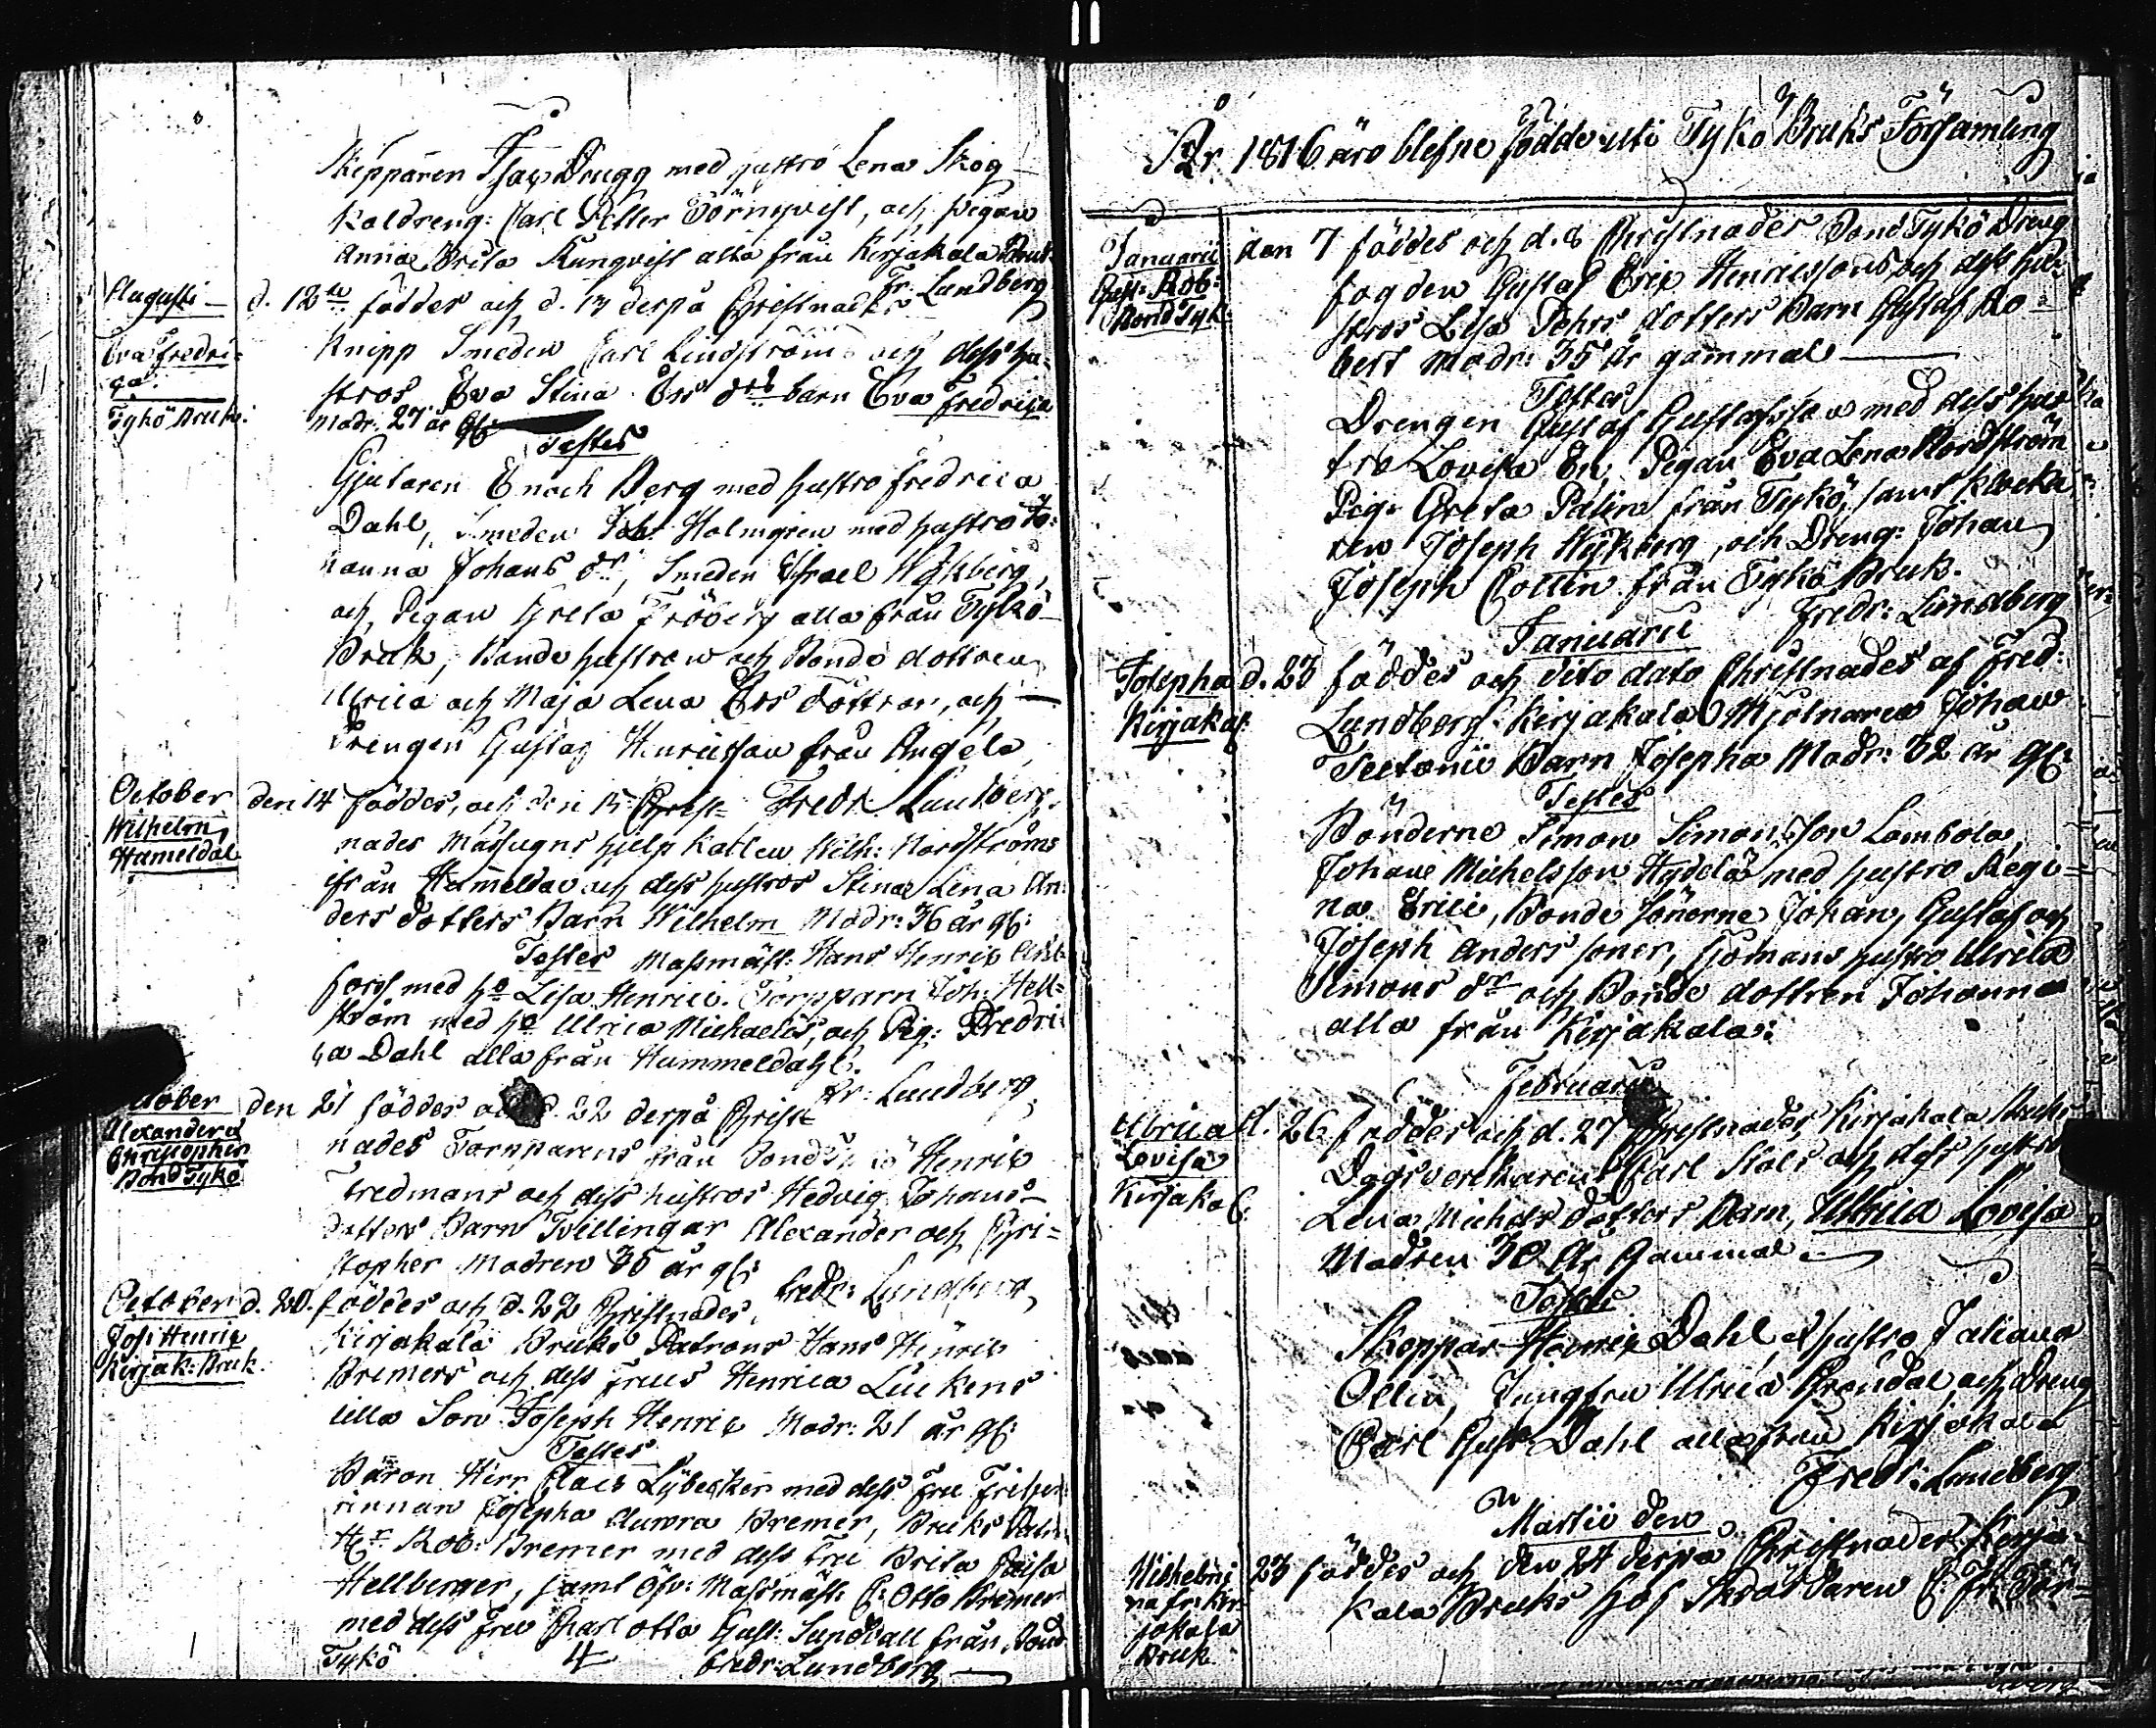 Skepparen Isax Drugg med hustro Lena Skog
Koldreng: Carl Petter Törnqvist, och Pigan
Anna Brita Kungvist alla från Kirjakala Bruk
Fr: Lundberg
Augusti d. 12te föddes och d. 13 derpå Christnades
Eva Fredri=
ca.
Tykö Bruk:
Knipp Smeden Carl Lindström och dess hu-
stros Eva Stina Ers drs barn Eva Fredrica
Modr. 27 år gl:
Testes
Gjutaren Enoch Berg med hustro Fredrica
Dahl, Smeden Joh: Holmgren med hustro Jo=
hanna Johans dr, Smeden Israel Wykberg,
och Pigan Greta Fröberg alla från Tykö
Bruk, Bonde hustron och Bonde dottren
Ulrica och Maja Lena Ers döttrar, och
Drengen Gustaf Henricsson från Angela
Fredr Lundberg.
October den 14 föddes, och den 15 Christ=
Wilhelm
Hameldal
nades Masugns hjelp Kallen Wilh: Nordströms
ifrån Hameldal och dess hustros Stina Lena An:
ders dotters Barn Wilhelm Modr: 36 år gl:
Testes Masmäst: Hans Henric
fors med ho Lisa Henrici. Torpparn Joh. Hell=
ström med ho Ulrica Michaelis, och Pig: Fredri
ca Dahl alla från Hummeldahl.
Fr: Lundberg
October den 21 föddes och d. 22 derpå Christ
Alexander et
Christopher
Bond Tykö
nades Torpparens från Bond Tykö Henric
Fredmans och dess hustros Hedvig Johans-
dotters Barn Tvillingar Alexander och Chri=
stopher Modren 35 år gl:
Fredr: Lundberg
October d. 20. föddes och d. 22 Christnades,
Jos: Henric
Kirjak: Bruk.
Kirjakala Bruks Patrons Hans Henric
Bremers och dess Frues Henrica Luckens
lilla Son Joseph Henric Modr: 21 år gl:
Testes
Baron Herr Claes Lybecker med dess Fru Friher
rinnan Josepha Aurora Bremer, Bruks Patr:
Hr Rob: Bremer med dess Fru Brita Lisa
Hellberger, samt Öfv: Masmäst: C: Otto Bremer
med dess Fru Charlotta Gust: Sundvall från Bond
Tykö
4
Fredr: Lundberg
År 1816 äro blefne födde uti Tykö Bruks Församling
Januarii den 7 föddes och d. 8 Christnades Bond Tykö Dreng
Gust: Rob:
Bond Tyk:
fogden Gustaf Eric Henricssons och dess hu-
stros Lisa Pehrs dotters Barn Gustaf Ro=
bert Modr: 35 år gammal
Testes
Drengen Gustaf Gustafsson med dess hus
tro Lovisa Er, Pigan Eva Lena Nordström
Pig: Greta Palin från Tykö, samt Klocka
ren Joseph Wykberg, och Dreng: Johan
Joseph Collin från Tykö Bruk.
Fredr: Lundberg
Januarii
Josepha d. 23 föddes och dito dato Christnades af Fred:
Kirjakal:
Lundberg Kirjakala Mjölnaren Johan
Barn Josepha Modr: 32 år gl:
Testes
Bönderne Simon Simonsson Lambola,
Johan Michelsson Hydelä med hustro Regi=
na Erici, Bonde Sönerne Johan, Gustaf och
Joseph Anders söner, Sjömans hustro Ulrica
Simons dr och Bonde dottren Johanna
alla från Kirjakala:
Februarii
Ulrica d. 26 föddes och d. 27 Christnades, Kirjakala Bruks
Lovisa
Kirjakal:
Dagsverkarens Carl Stols och dess hustros
Lena Michels dotters Barn, Ulrica Lovisa
Modren 30 År Gammal
Testes
Skeppar Henric Dahl, et hustro Juliana
Ollin, Jungfru Ulrica Grendal, och Dreng
Carl Gust: Dahl alla från Kirjakala
Fredr: Lundberg
Martii den
Wilhelmi
na fr: Kir
jakala
Bruk
23 föddes och den 24 derpå Christnades Kirja-
kala Bruks Hof Skräddaren C: Fr: Tör=